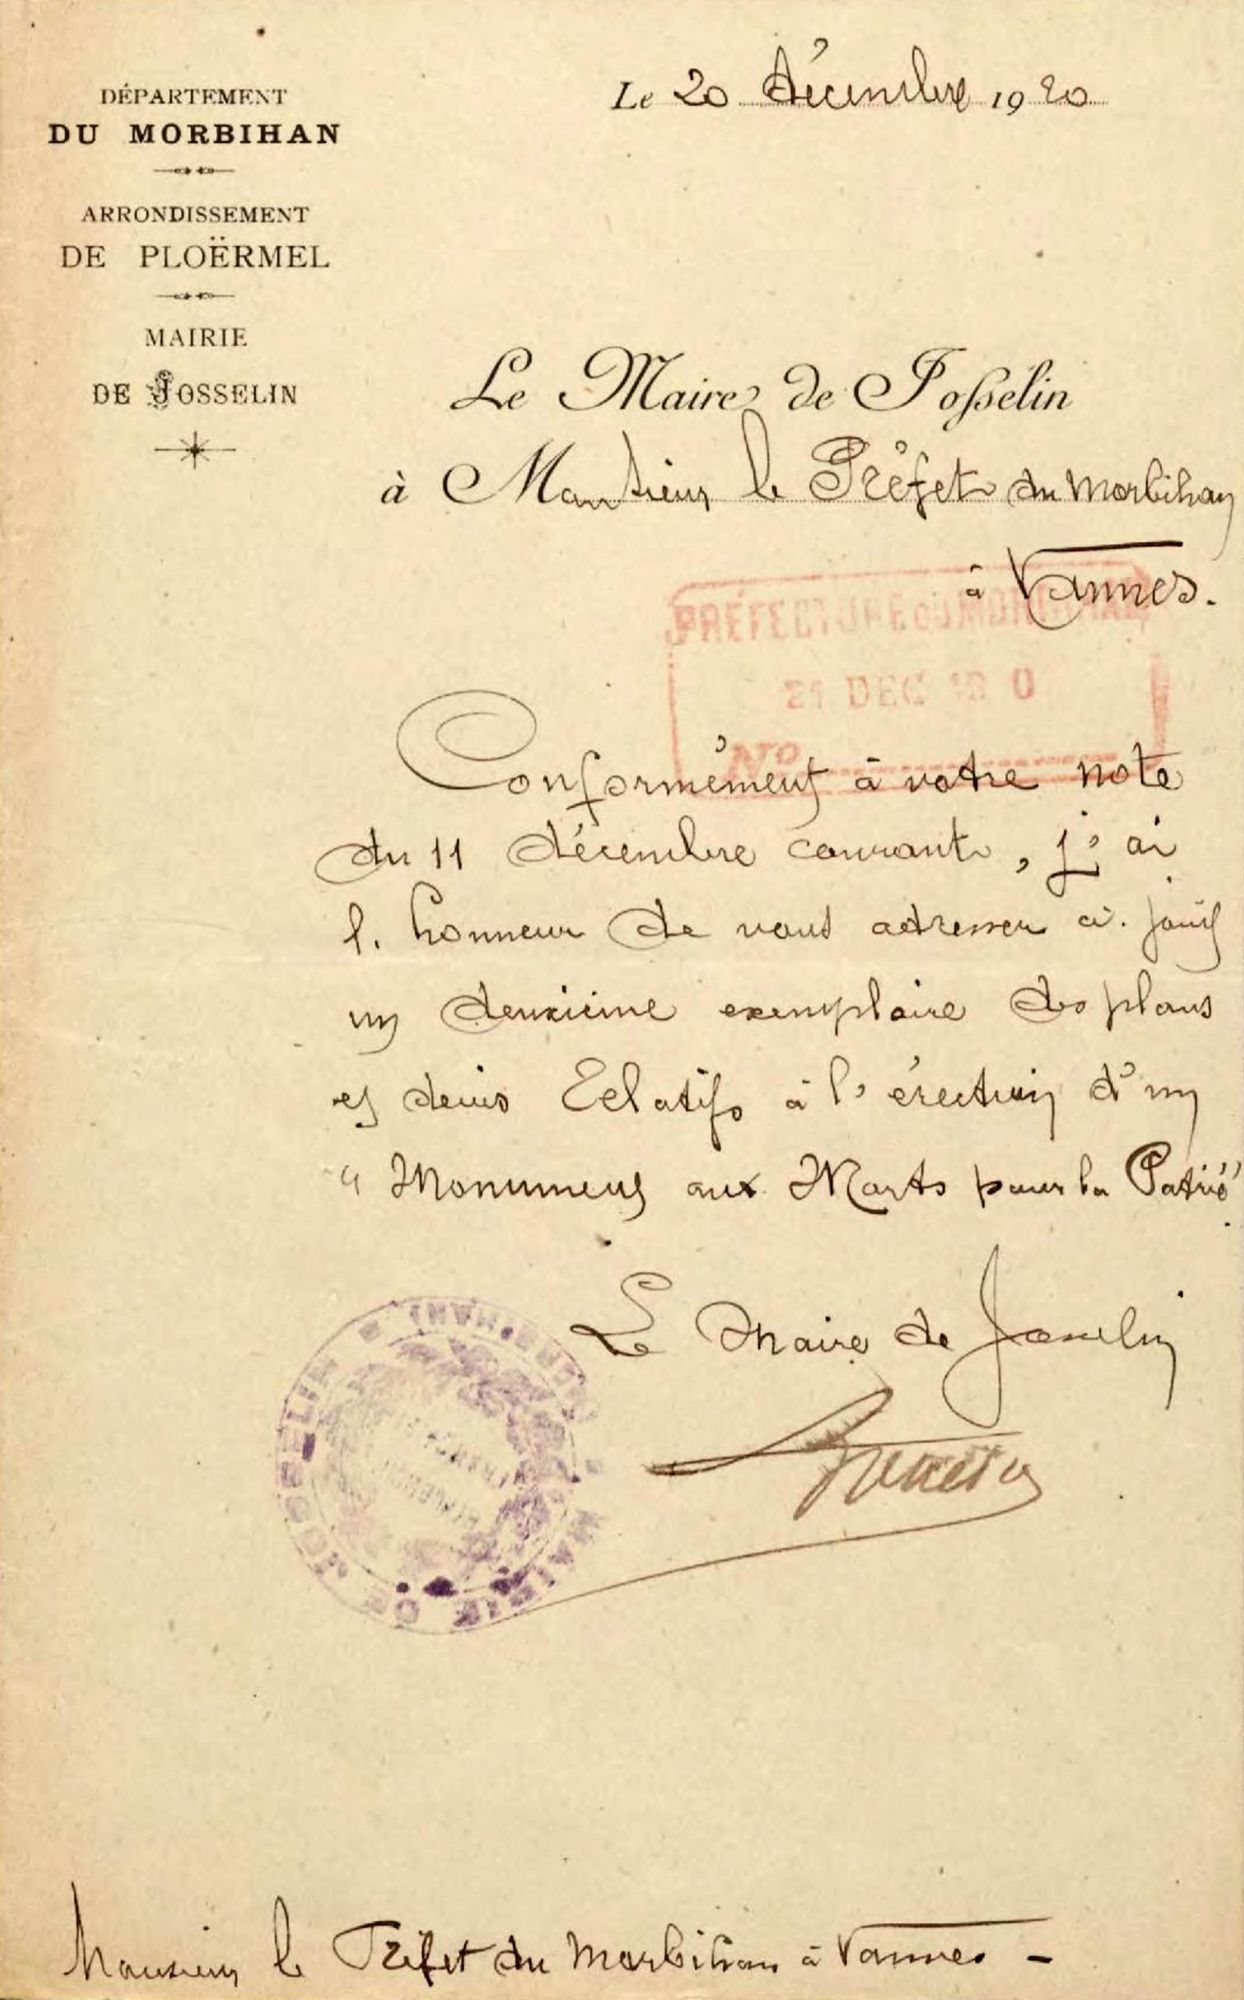 DÉPARTEMENT
DU MORBIHAN
ARRONDISSEMENT
DE PLOËRMEL
MAIRIE
DE JOSSELIN
Le 20 décembre 1920
Le Maire de Josselin
à Monsieur le Préfet du Morbihan
à Vannes.
PRÉFECTURE DU MORBIHAN
21 DEC 19 0
No
Conformément à votre note
du 11 décembre courant, j'ai
l'honneur de vous adresser ci-joint
un deuxième exemplaire des plans
et devis relatifs à l'érection d'un
"Monument aux Morts pour la Patrie".
Le Maire de Josselin
MAIRIE DE JOSSELIN
Monsieur le Préfet du Morbihan à Vannes -